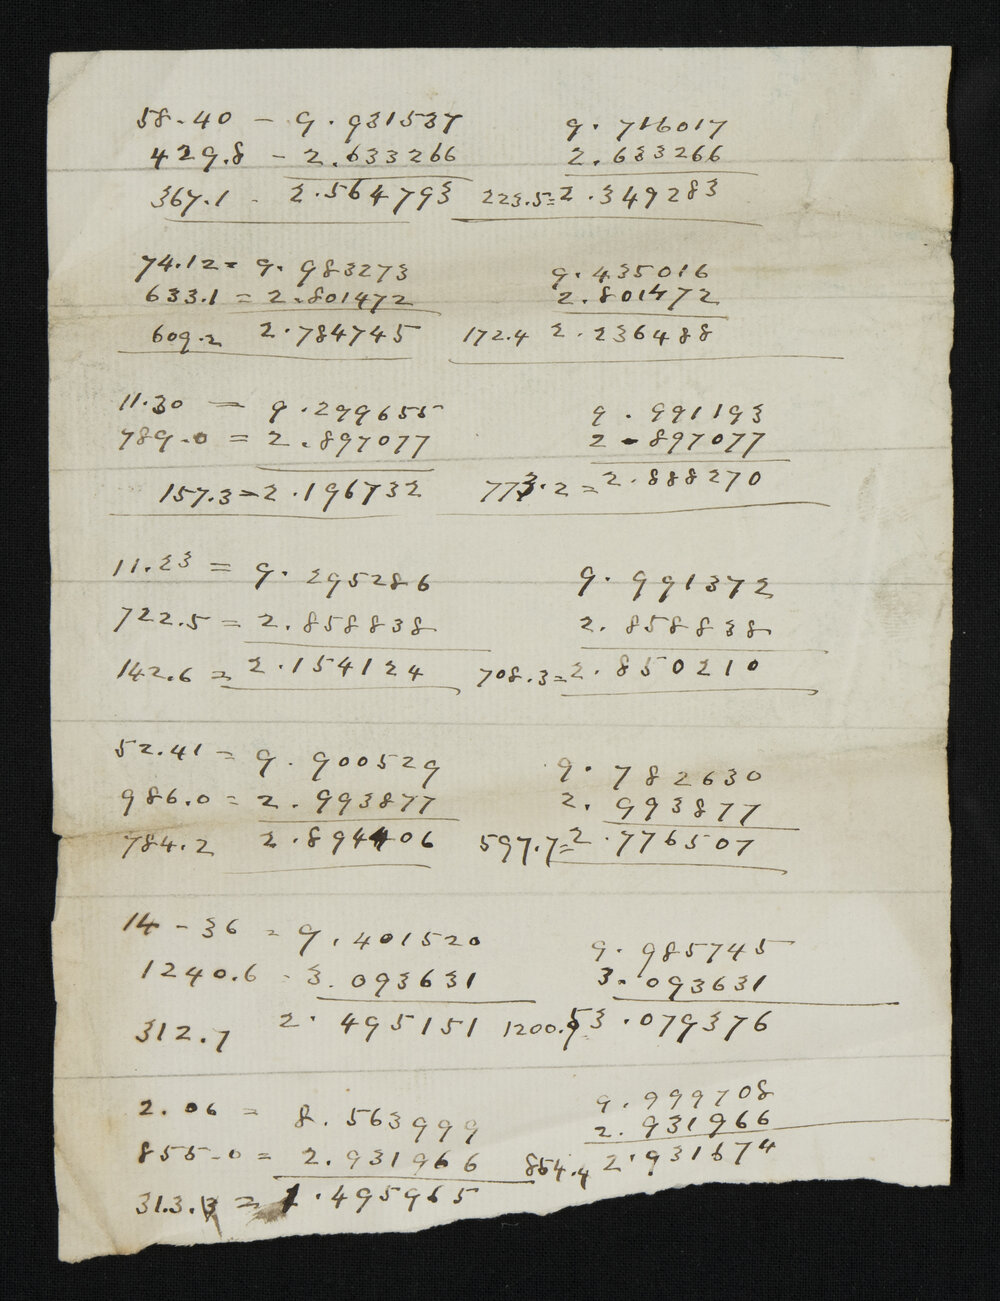 58-40 - 9.931537 9.716017
429.8 - 2.633266 2.633266
367.1 - 2.564793 223.5=2.349283
74.12= 9.983273 9.435016
633.1 = 2.801472 2.801472
609.2 2.784745 172.4 2.236488
11.30 = 9.299655 9.991193
789.0 = 2.897077 2-897077
157.3=2.196732 773.2=2.888270
11.23 = 9.295286 9.991372
722.5 = 2.858838 2.858838
142.6 = 2.154124 708.3=2.850210
52.41 = 9.900529 9.782630
986.0 = 2.993877 2.993877
784.2 2.894406 597.7=2.776507
14-36 = 9.401520 9.985745
1240.6 - 3.093631 3.093631
312.7 2.495151 1200.5 3.079376
2.06 = 8.563999 9.999708
855-0 = 2.931966 2.931966
31.3.3 = 1.495965 854.4 2.931674